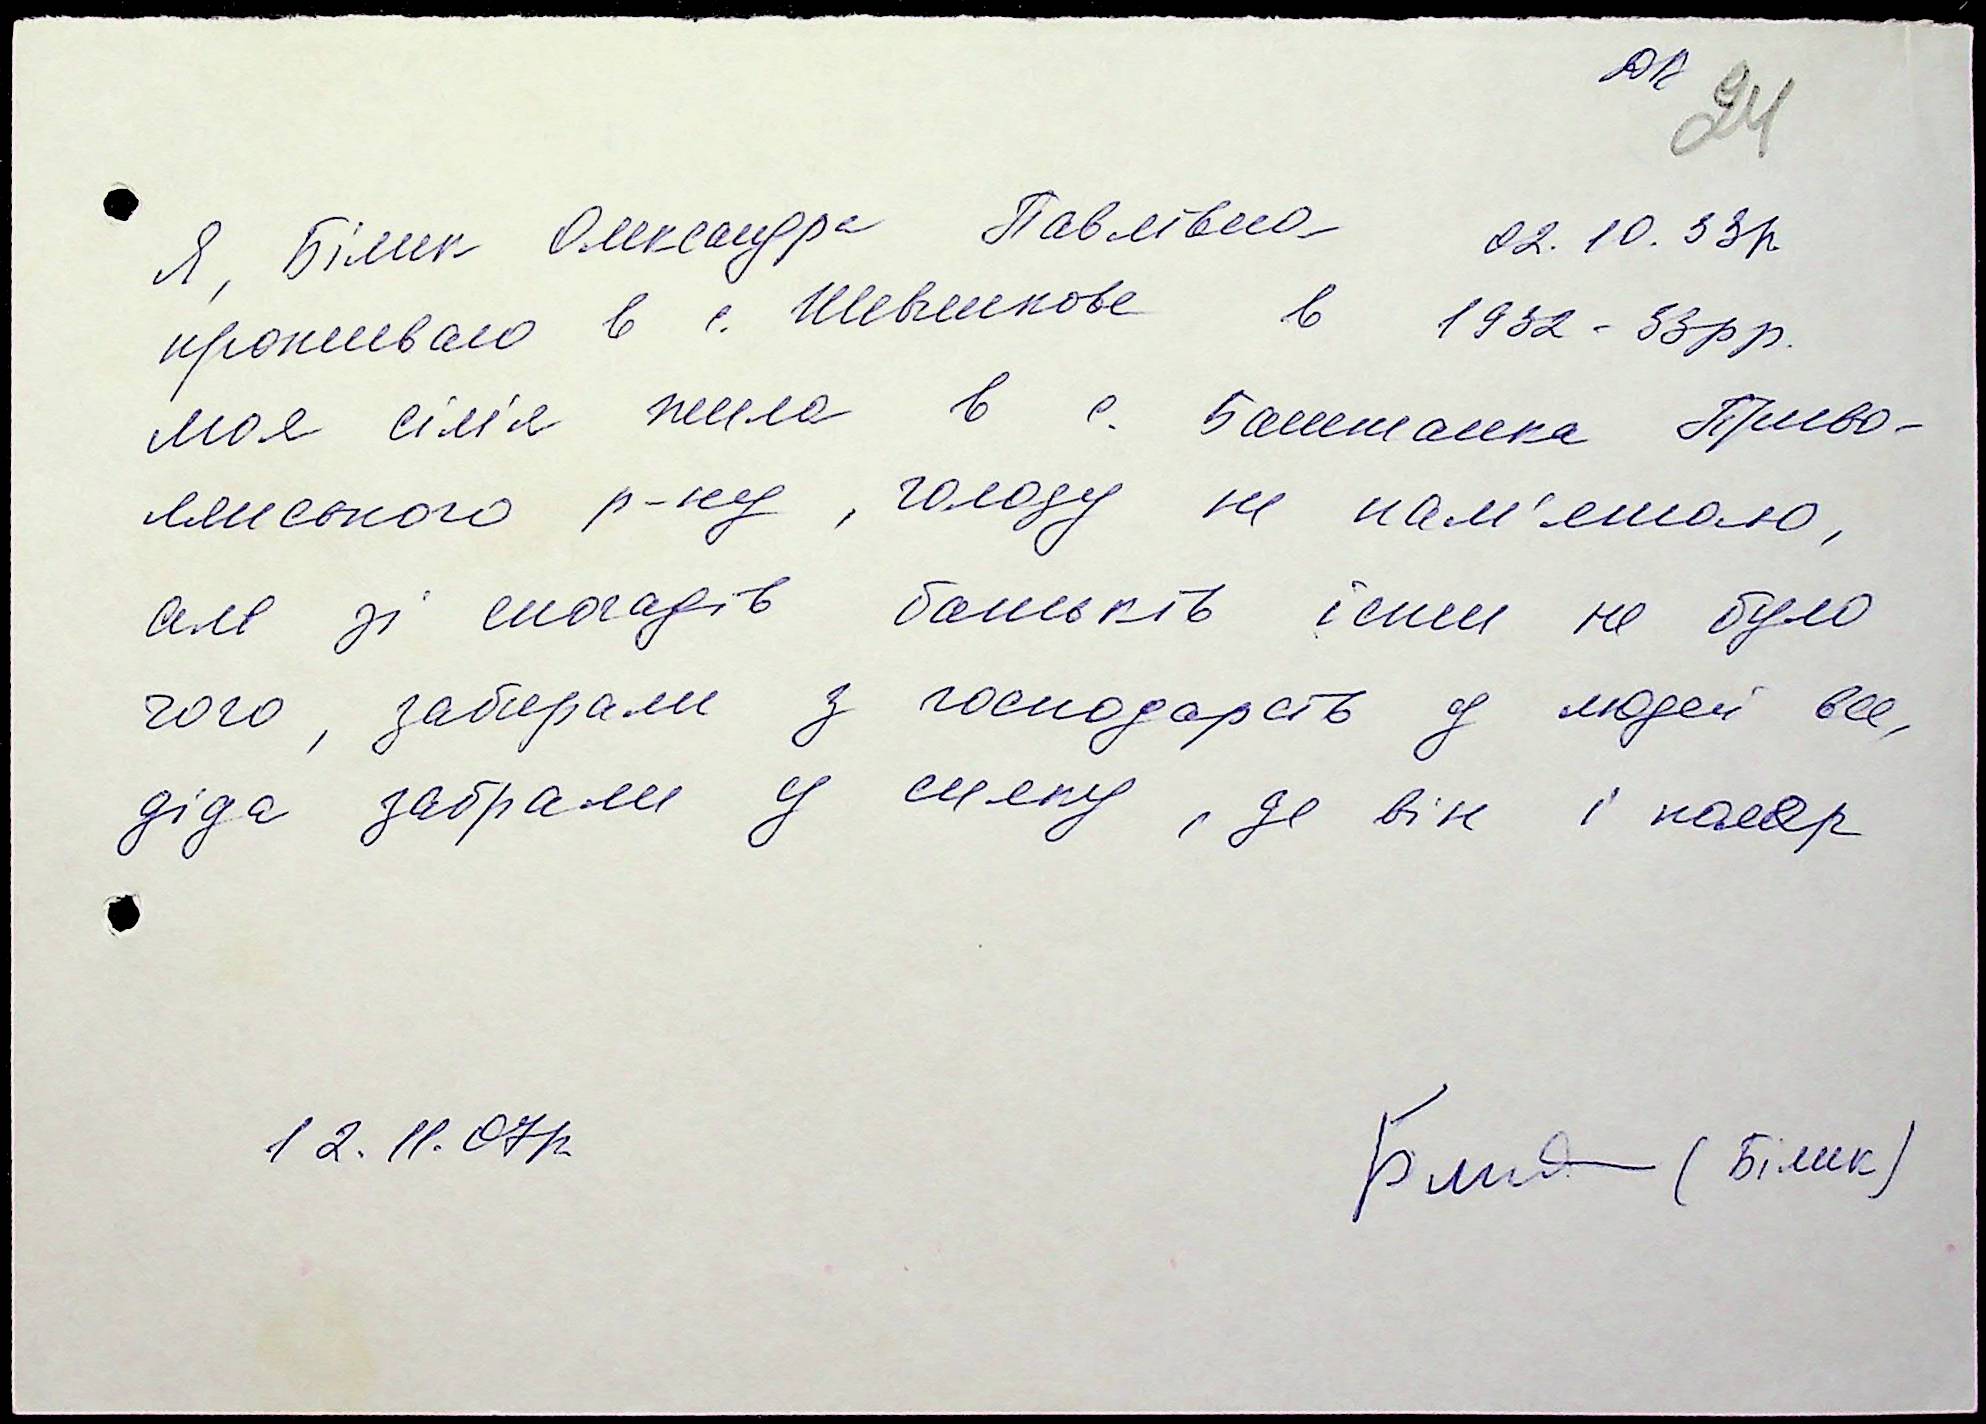 24
Я, Білик Олександра Павлівна 02.10.33р
проживаю в с. Шевченкове в 1932-33рр.
моя сім'я жила в с. Баштанка Приво-
лянського р-ну, голоду не пам'ятаю,
але зі спогадів батьків їсти не було
чого, забирали з господарств у людей все,
діда забрали у силку, де він і помер
12.11.07р
(Білик)